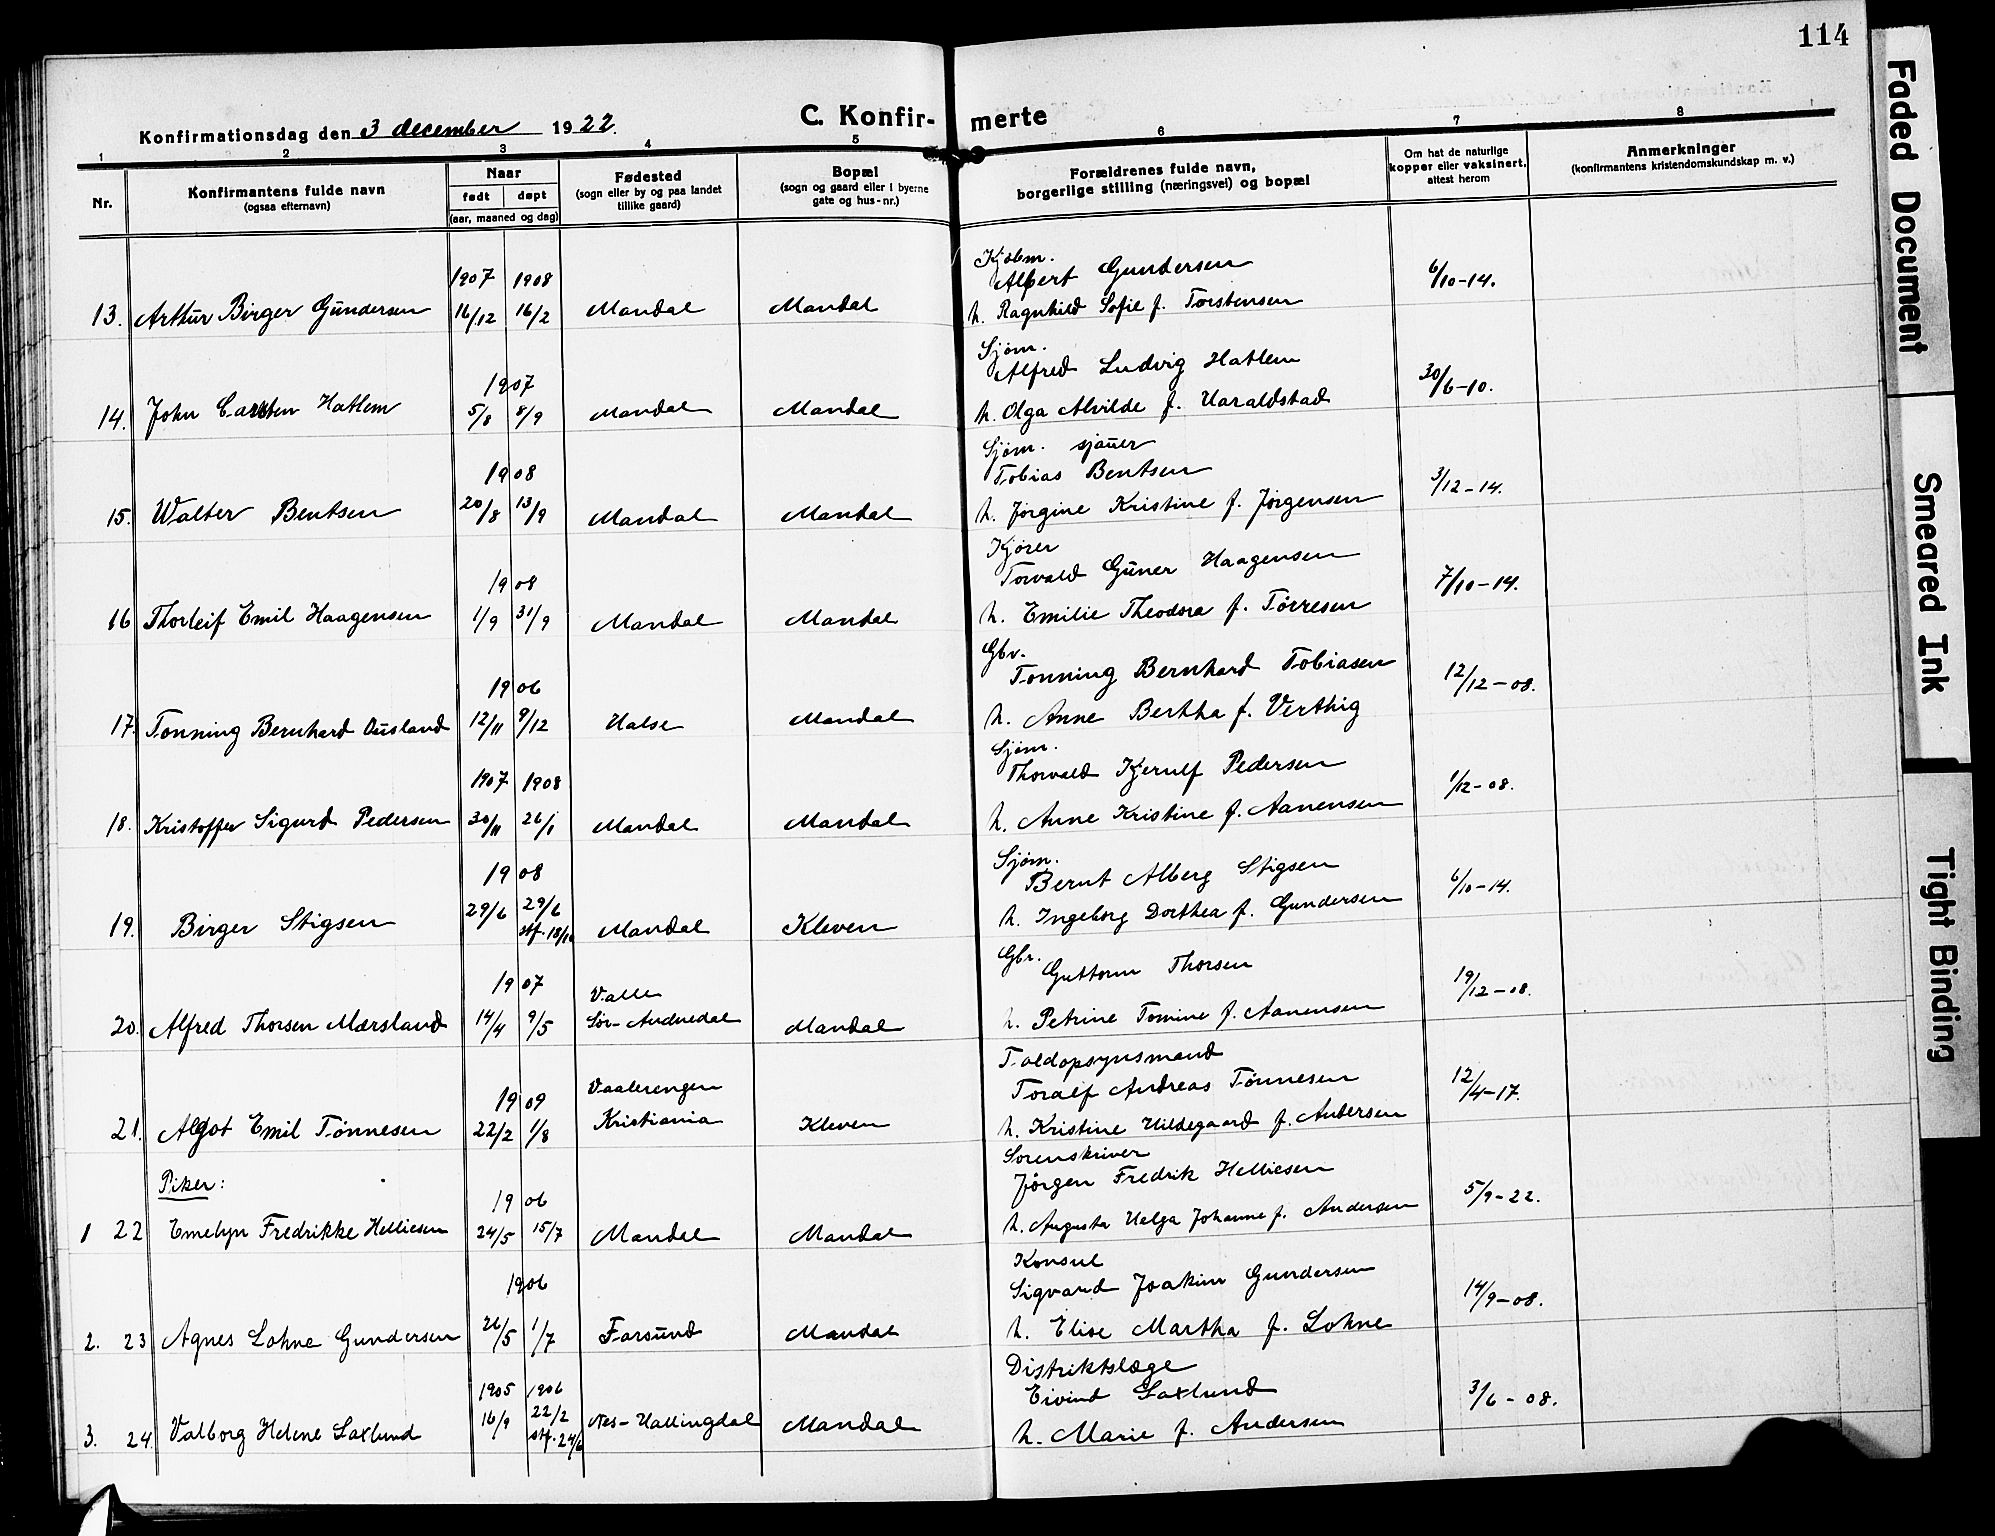 114
Konfirmationsdag den 3 december 1922.
C. Konfirmerte
1 2 3 4 5 6 7 8
Nr.
Konfirmantens fulde navn
(ogsaa efternavn)
Naar
født døpt
(aar, maaned og dag)
Fødested
(sogn eller by og paa landet
tillike gaard)
Bopæl
(sogn og gaard eller i byerne
gate og hus-nr.)
Forældrenes fulde navn,
borgerlige stilling (næringsvei) og bopæl
Om hat de naturlige
kopper eller vaksinert,
attest herom
Anmerkninger
(konfirmantens kristendomskundskap m. v.)
Kjøbm.
1907 1908 Albert Gundersen 6/10-14.
13. Arthur Birger Gundersen 16/12 16/2 Mandal Mandal h. Ragnhild Sofie f. Torstensen
Sjøm.
1907 Alfred Ludvig Hatlem 30/6-10.
14. John Carsten Hatlem 5/8 8/9 Mandal Mandal h. Olga Alvilde f. Haraldstad
Sjøm. sjauer
1908 Tobias Bentsen 3/12-14.
15. Walter Bentsen 20/8 13/9 Mandal Mandal h. Jørgine Kristine f. Jørgensen
Kjører
1908 Torvald Guner Haagensen 7/10-14.
16 Thorleif Emil Haagensen 1/9 31/9 Mandal Mandal h. Emilie Theodora f. Tørresen
Gbr.
1906 Tønning Bernhard Tobiasen 12/12-08.
17. Tønning Bernhard Ousland 12/11 9/12 Halse Mandal h. Anne Bertha f. Verthig
Sjøm.
1907 1908 Thorvald Kjerulf Pedersen 1/12-08.
18. Kristoffer Sigurd Pedersen 30/11 26/1 Mandal Mandal h. Anne Kristine f. Aanensen
Sjøm.
1908 Bernt Alberg Stigsen 6/10-14.
29/6 29/6
19. Birger Stigsen stf. 18/10 Mandal Kleven h. Ingeborg Dorthea f. Gundersen
Gbr.
1907 Valle Guttorm Thorsen 19/12-08.
20. Alfred Thorsen Mærsland 14/4 9/5 Sør-Audnedal Mandal h. Petrine Tomine f. Aanensen
Toldopsynsmand
1909 Vaalerengen Toralf Andreas Tønnesen 12/4-17.
21. Algot Emil Tønnesen 22/2 1/8 Kristiania Kleven h. Kristine Hildegaard f. Andersen
Piker:
Sorenskriver
1906 Jørgen Fredrik Helliesen 5/9-22.
1 22 Emelyn Fredrikke Helliesen 24/5 15/7 Mandal Mandal h. Augusta Helga Johanne f. Andersen
Konsul
1906 Sigvard Joakim Gundersen 14/9-08.
2. 23 Agnes Lohne Gundersen 26/5 1/7 Farsund Mandal h. Elise Martha f. Lohne
Distriktslæge
1905 1906 Eivind Saxlund 3/6-08.
16/9 22/2
3. 24. Valborg Helene Saxlund stf. 24/6 Nes-Hallingdal Mandal h. Marie f. Andersen
Faded Document
Smeared Ink
Tight Binding